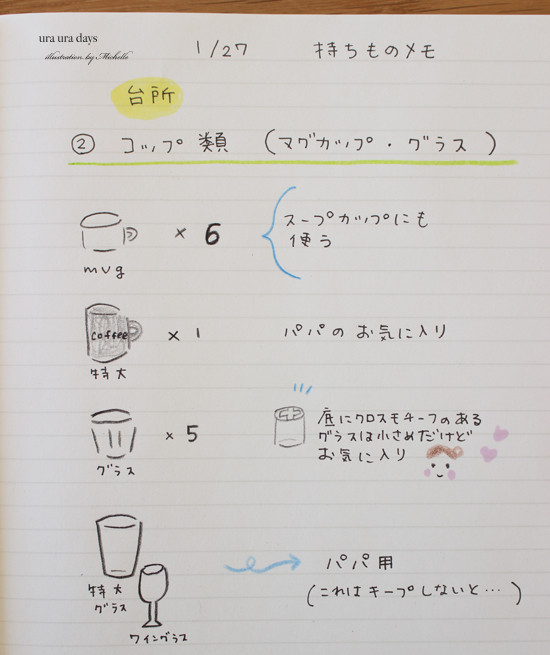 ura ura days
illustration by Michelle
1/27 持ちものメモ
台所
② コップ類 (マグカップ・グラス)
× 6
スープカップにも
使う
mug
coffee
× 1 パパのお気に入り
特大
× 5
底にクロスモチーフのある
グラスは小さめだけど
お気に入り
グラス
パパ用
(これはキープしないと…)
特大
グラス
ワイングラス